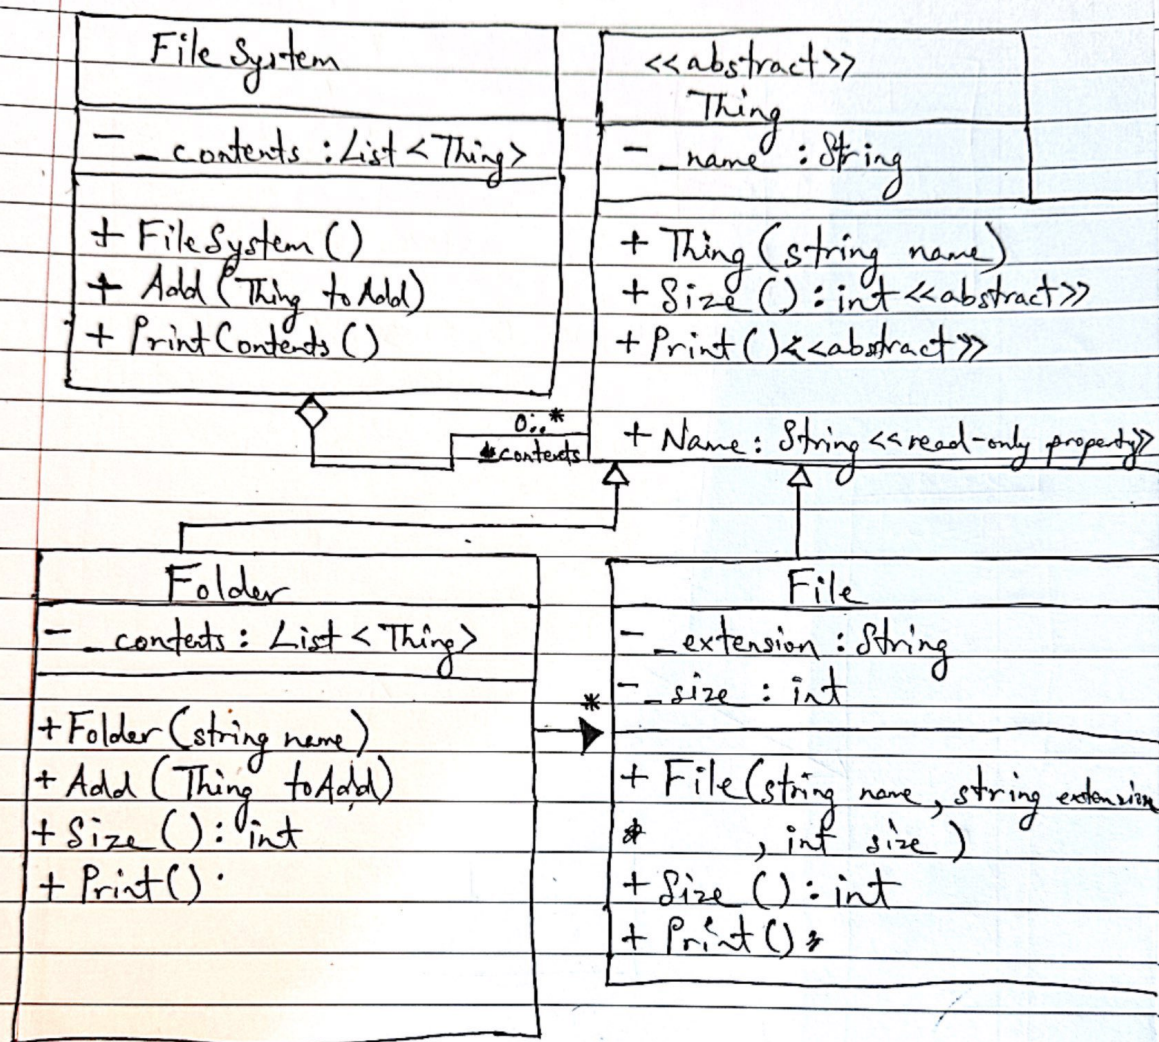 File System
- _contents : List <Thing>
+ FileSystem ()
+ Add (Thing to Add)
+ Print Contents ()
<<abstract>>
Thing
- _name : String
+ Thing (string name)
+ Size () : int <<abstract>>
+ Print () <<abstract>>
+ Name : String <<read-only property>>
0..*
contents
Folder
- _contents : List <Thing>
+ Folder (string name)
+ Add (Thing toAdd)
+ Size () : int
+ Print() :
*
File
- _extension : String
- _size : int
+ File (string name, string extension
, int size)
+ Size () : int
+ Print () :